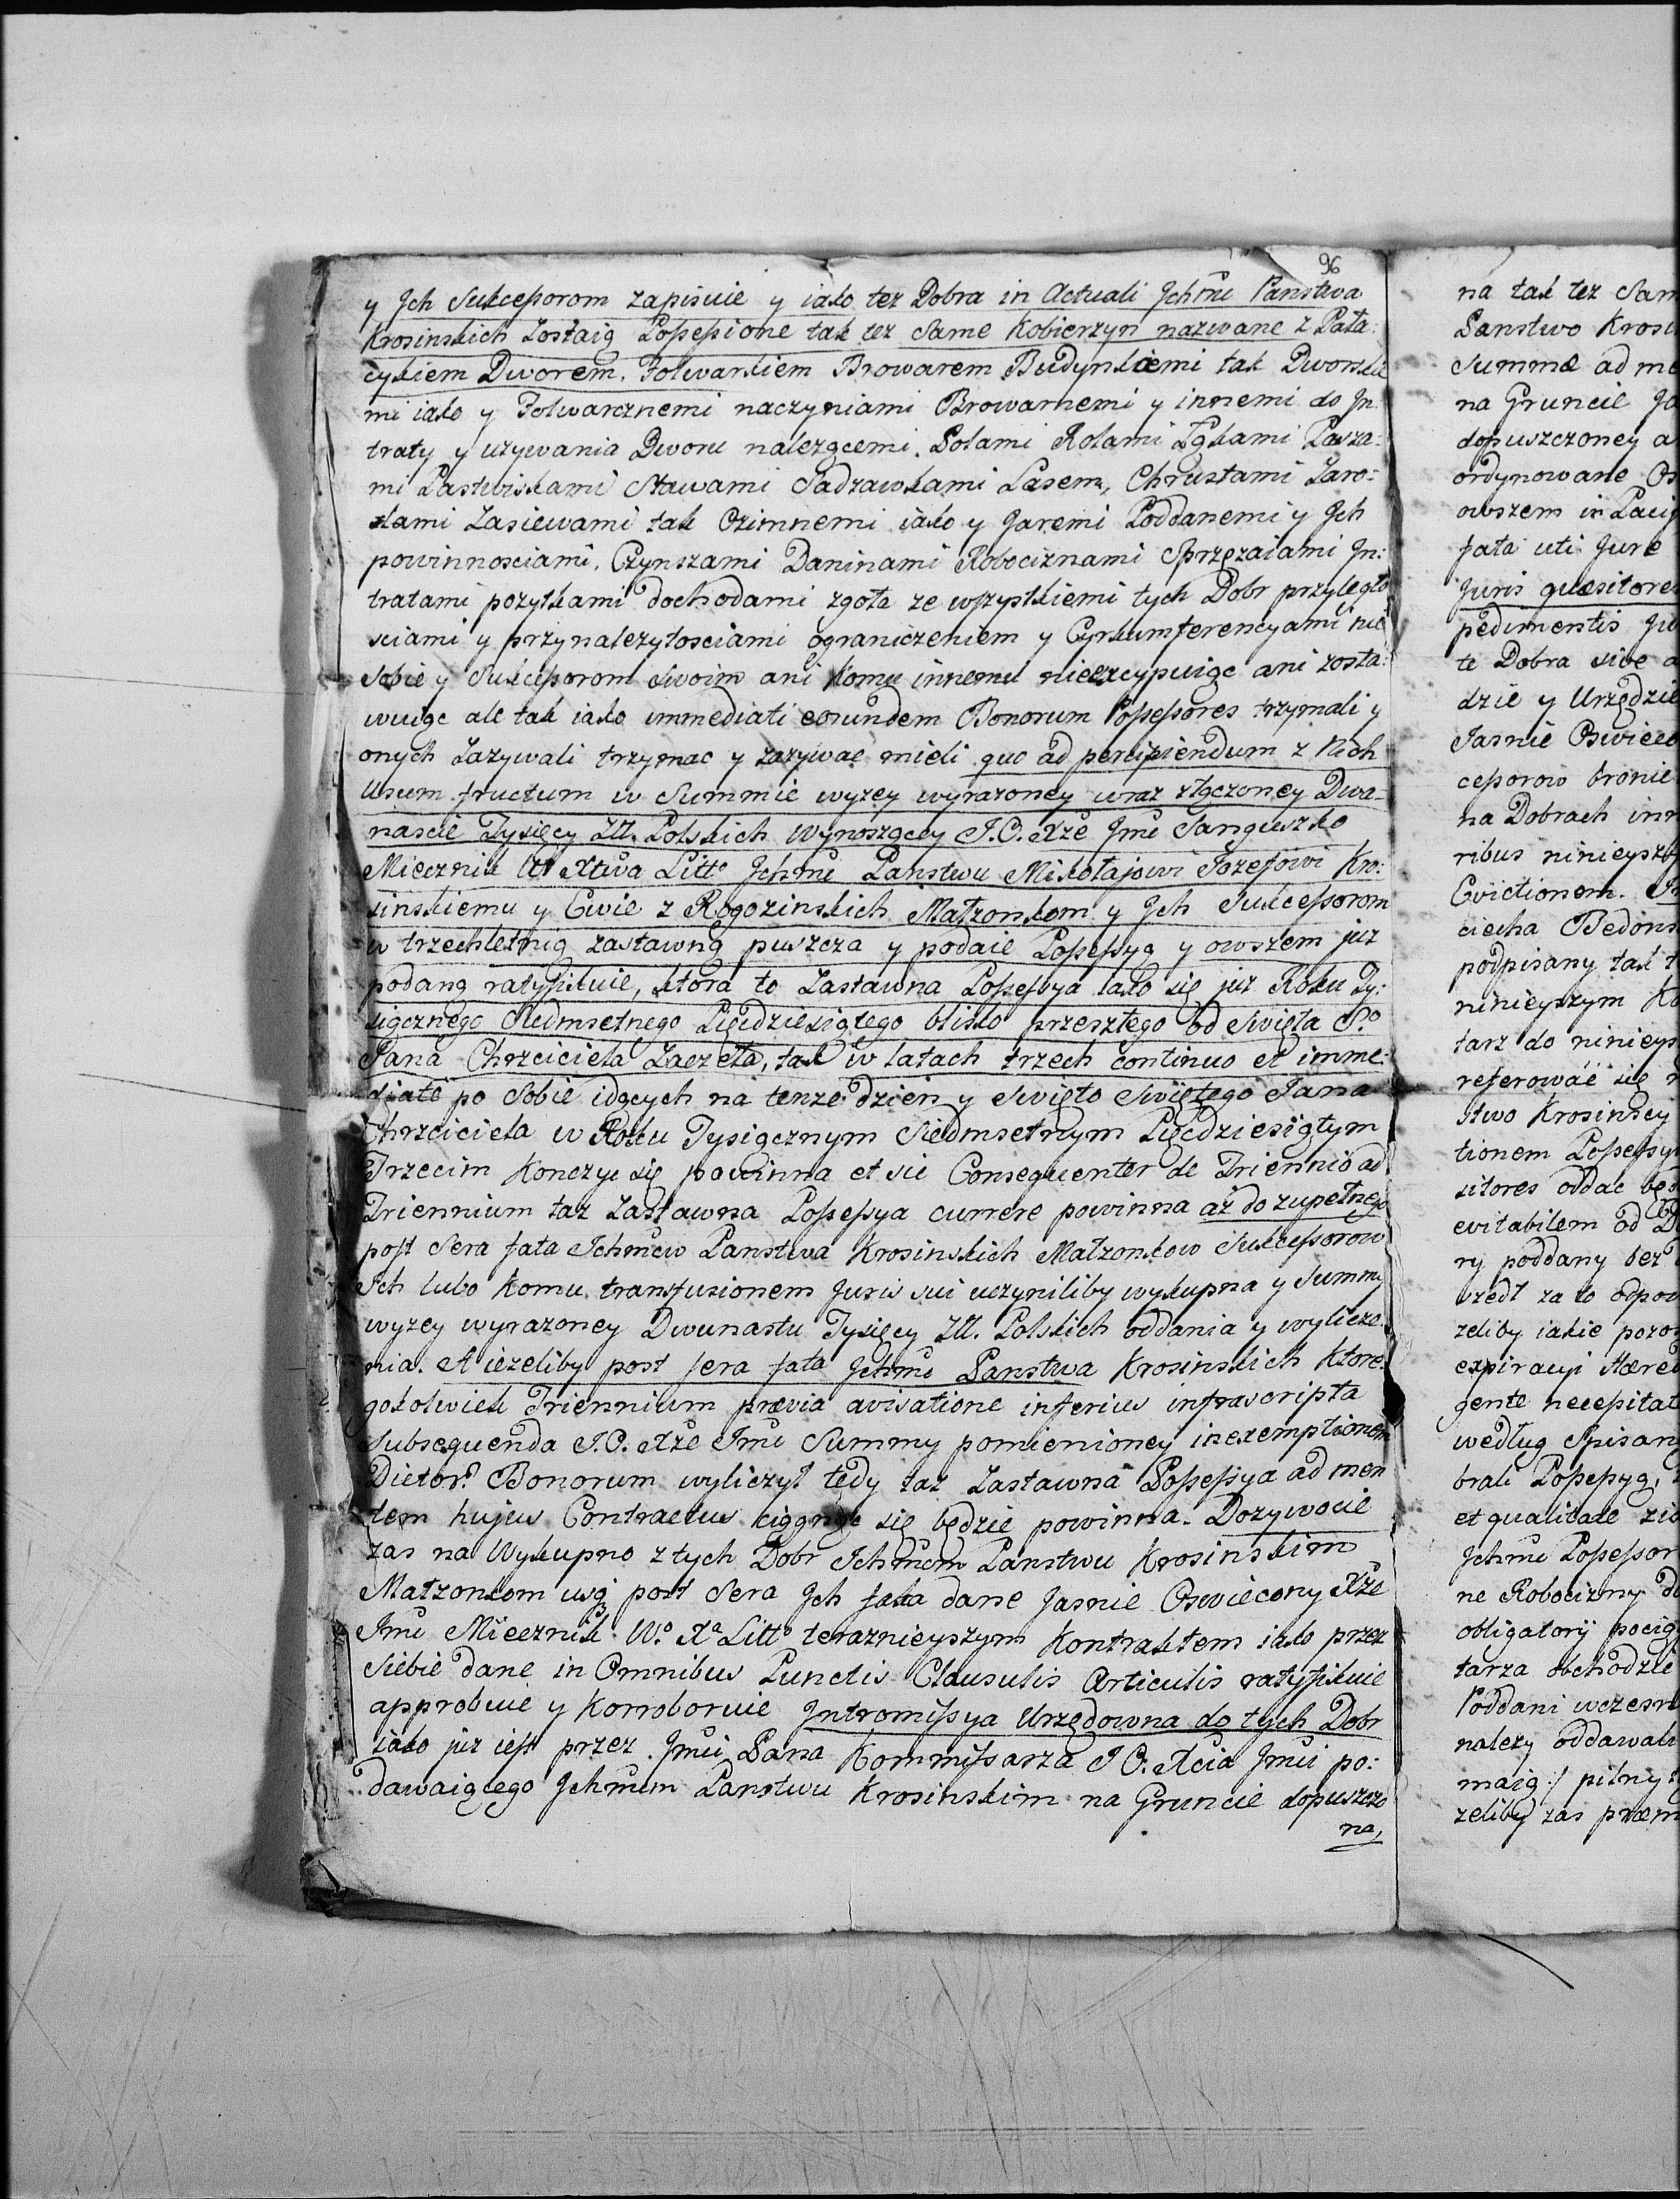 96
y Jch Sukcessorom zapisuie y iako tez Dobra in Actuali Jchmć Panstwa
Krosinskich Zostaią Possessione tak tez Same Kobierzyn nazwane z Pała:
cykiem Dworem. Folwarkiem Browarem Budynkiemi tak Dworskie
mi iako y Folwarcznemi naczyniami Browarnemi y innemi do Jn
traty y uzywania Dworu nalezącemi. Polami Rolami Łąkami Pasza:
mi Pastwiskami Stawami Sadzawkami Lasem, Chrustami Zaro:
slami Zasiewami tak Ozimnemi iako y Jaremi Poddanemi y Jch
powinnosciami. Czynszami Daninami Robociznami Sprzęzaiami Jn:
tratami pozytkami dochodami zgoła ze wszystkiemi tych Dobr przyległo
sciami y przynalezytosciami ograniczeniem y Cyrkumferencyami nic
Sobie y Sukcessorom swoim ani Komu innemu nieexcypuiąc ani zosta:
wuiąc ale tak iako immediati eorundem Bonorum Possessores trzymali y
onych Zazywali trzymac y zazywac mieli quo ad percipiendum z Nich
Usum fructum w Summie wyzey wyrazoney wraz złączoney Dwa-
nascie Tysięcy Złł. Polskich Wynoszącey J.O. Xże Jmć Sanguszko
Miecznik W Xtwa Litto Jchmć Panstwu Mikołajowi Jozefowi Kro:
sinskiemu y Ewie z Rogozinskich Małzonkom y Jch Sukcessorom
w trzechletnią zastawną puszcza y podaie Possessyą y owszem juz
podaną ratyfikuie, ktora to Zastawna Possessya iako się juz Roku Ty:
siącznego Siedmsetnego Pięcdziesiątego blisko przeszłego od Swięta So
Jana Chrzciciela Zaczeła, tak w latach trzech continuo et imme:
diate po Sobie idących na tenze dzien y Swięto Swiętego Jana
Chrzciciela w Roku Tysiącznym Siedmsetnym Pięcdziesiątym
Trzecim Konczyc się powinna et sic Consequenter de Triennio ad
Triennium taz Zastawna Possessya currere powinna aż do zupełnego
post Sera fata Jchmciow Panstwa Krosinskich Małzonkow Sukcessorow
Jch lubo Komu transfusionem Juris sui uczyniliby wykupna y Summy
wyzey wyrazoney Dwunastu Tysięcy Złł. Polskich oddania y wylicze:
nia. A iezeliby post sera fata Jchmć Panstwa Krosinskich Ktore:
gokolwiek Triennium prævia avisatione inferius infrascripta
Subsequenda J.O. Xże Jmć Summy pomienioney in exemptionem
Dictor. Bonorum wyliczył tędy taz Zastawna Possessya ad men
tem hujus Contractus ciągnąc się będzie powinna. Dozywocie
zas na Wykupno z tych Dobr Jchmciom Panstwu Krosinskim
Małzonkom usq3 post Sera Jch fata dane Jasnie Oswiecony Xże
Jmć Miecznik Wo Xa Litto teraznieyszym Kontraktem iako przez
Siebie dane in Omnibus Punctis Clausulis Articulis ratyfikuie
approbuie y Korroboruie Jntromissya Urzędowna do tych Dobr
iako juz iest przez Jmći Pana Kommissarza J O. Xcia Jmći po:
dawaiącego Jchmćm Panstwu Krosinskim na Gruncie dopuszczo
na,
na tak tez Sam
Panstwo Krosi
Summæ ad me
na Gruncie Ja
dopuszczoney a
ordynowane Os
owszem in Pacif
fata uti Jure
Juris quæsitore
pedimentis
te Dobra sive a
dzie y Urzędzie
Jasnie Oswieco
cessorow bronic
na Dobrach inn
ribus ninieysz
Evictionem.
ciecha Bedons
podpisany tak t
ninieyszym Ko
tarz do ninieys
referowáć się
stwo Krosinscy
tionem Possessy
sitores oddac będ
evitabilem od
ry poddany bez
szedł za to odpow
zeliby iakie pozo
expiracyi Hæred
gente necessitat
według Spisan
brali Possessyą,
et qualitate
Jchmć Possessor
ne Robocizny
obligatorij pocią
tarza obchodzic
Poddani wczesn
nalezy oddawali
maią:/ pilny
zeliby zas præm